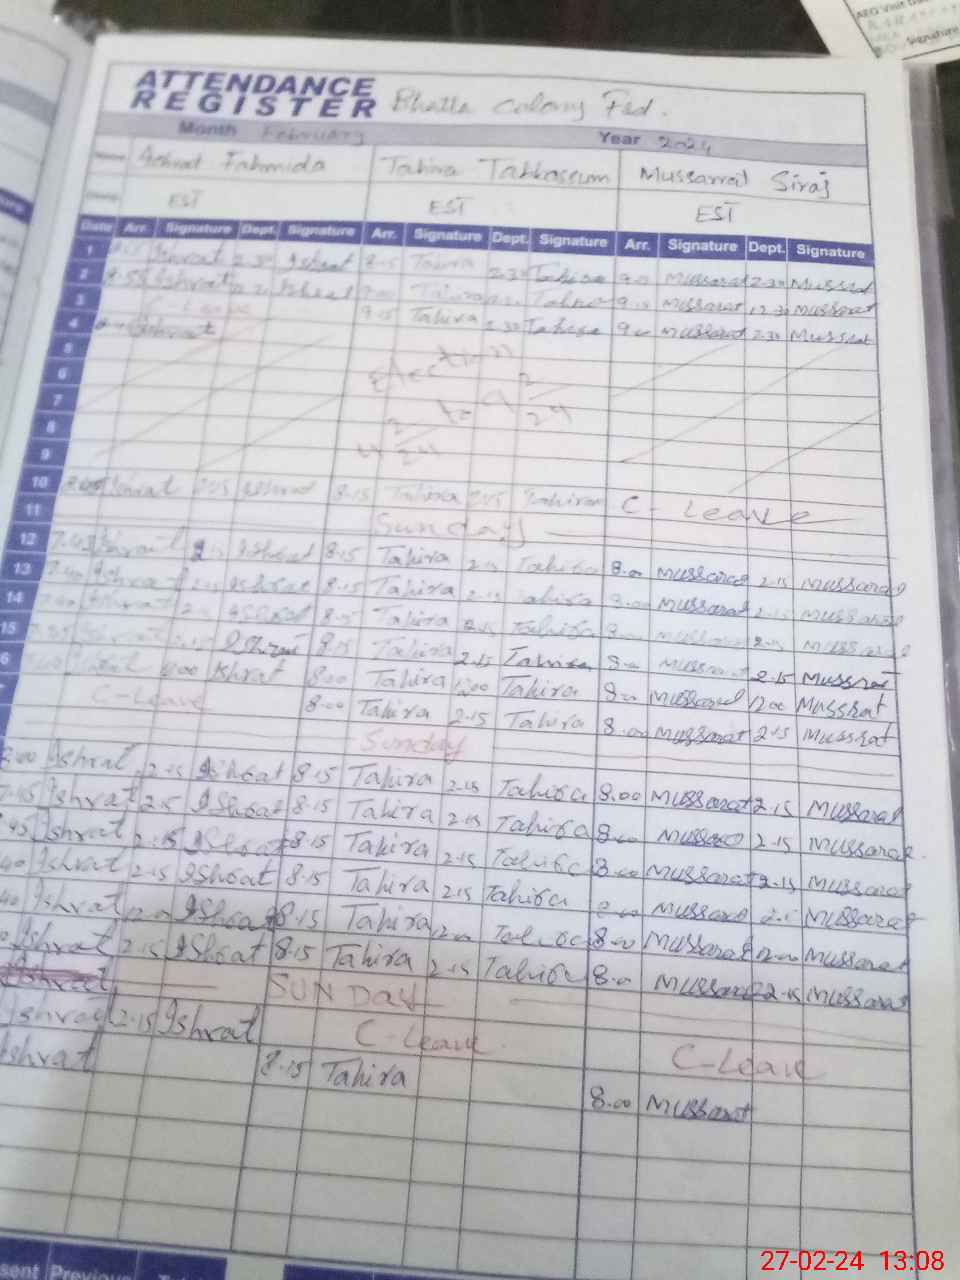 AEO Visit
Signature
ATTENDANCE
REGISTER Bhatta Colony Fsd.
Month February Year 2024
Ishrat Fahmida Tahira Tabbassum Mussarrat Siraj
EST EST EST
Date Arr. Signature Dept. Signature Arr. Signature Dept. Signature Arr. Signature Dept. Signature
1 Ishrat 2.30 Ishrat 8.15 Tahira 2.30 Tahira 9.00 Mussarat 2.30 Mussrat
2 8.55 Ishrat Ishrat Tahira Tahira 9.15 Mussarat 12.30 Mussarat
3 Leave 9.15 Tahira 2.30 Tahira 9.00 Mussarat 2.30 Mussrat
4 Ishrat
5 Election
6
7 to 9 2/24
8 4 2/24
9
10 Ishrat 2.15 Ishrat 8.15 Tahira 2.15 Tahira C- Leave
11 Sunday
12 7.45 Ishrat 2.15 Ishrat 8.15 Tahira 2.15 Tahira 8.00 Mussarat 2.15 Mussarat
13 7.40 Ishrat Ishrat 8.15 Tahira 2.15 Tahira 8.00 Mussarat 2.15 Mussarat
14 Ishrat Ishrat 8.15 Tahira 2.15 Tahira Mussarat Mussarat
15 Ishrat 8.15 Tahira 2.15 Tahira 8.00 Mussarat 2.15 Mussrat
6 12.00 Ishrat 8.00 Tahira 12.00 Tahira 8.00 Mussarat 12.00 Mussrat
C-Leave 8.00 Tahira 2.15 Tahira 8.00 Mussarat 2.15 Mussrat
Sunday
8.00 Ishrat 2.15 Ishrat 8.15 Tahira 2.15 Tahira 8.00 Mussarat 2.15 Mussarat
7.45 Ishrat 2.15 Ishrat 8.15 Tahira 2.15 Tahira 8.00 Mussarat 2.15 Mussarat
45 Ishrat 2.15 Ishrat 8.15 Tahira 2.15 Tahira 8.00 Mussarat 2.15 Mussarat
40 Ishrat 2.15 Ishrat 8.15 Tahira 2.15 Tahira 8.00 Mussarat Mussarat
40 Ishrat 12.00 Ishrat 8.15 Tahira 12.00 Tahira 8.00 Mussarat 12.00 Mussarat
Ishrat 2.15 Ishrat 8.15 Tahira 2.15 Tahira 8.00 Mussarat 2.15 Mussarat
Ishrat SUNDAY
Ishrat 2.15 Ishrat C-Leave C-Leave
Ishrat 8.15 Tahira 8.00 Mussarat
sent Previous
27-02-24 13:08